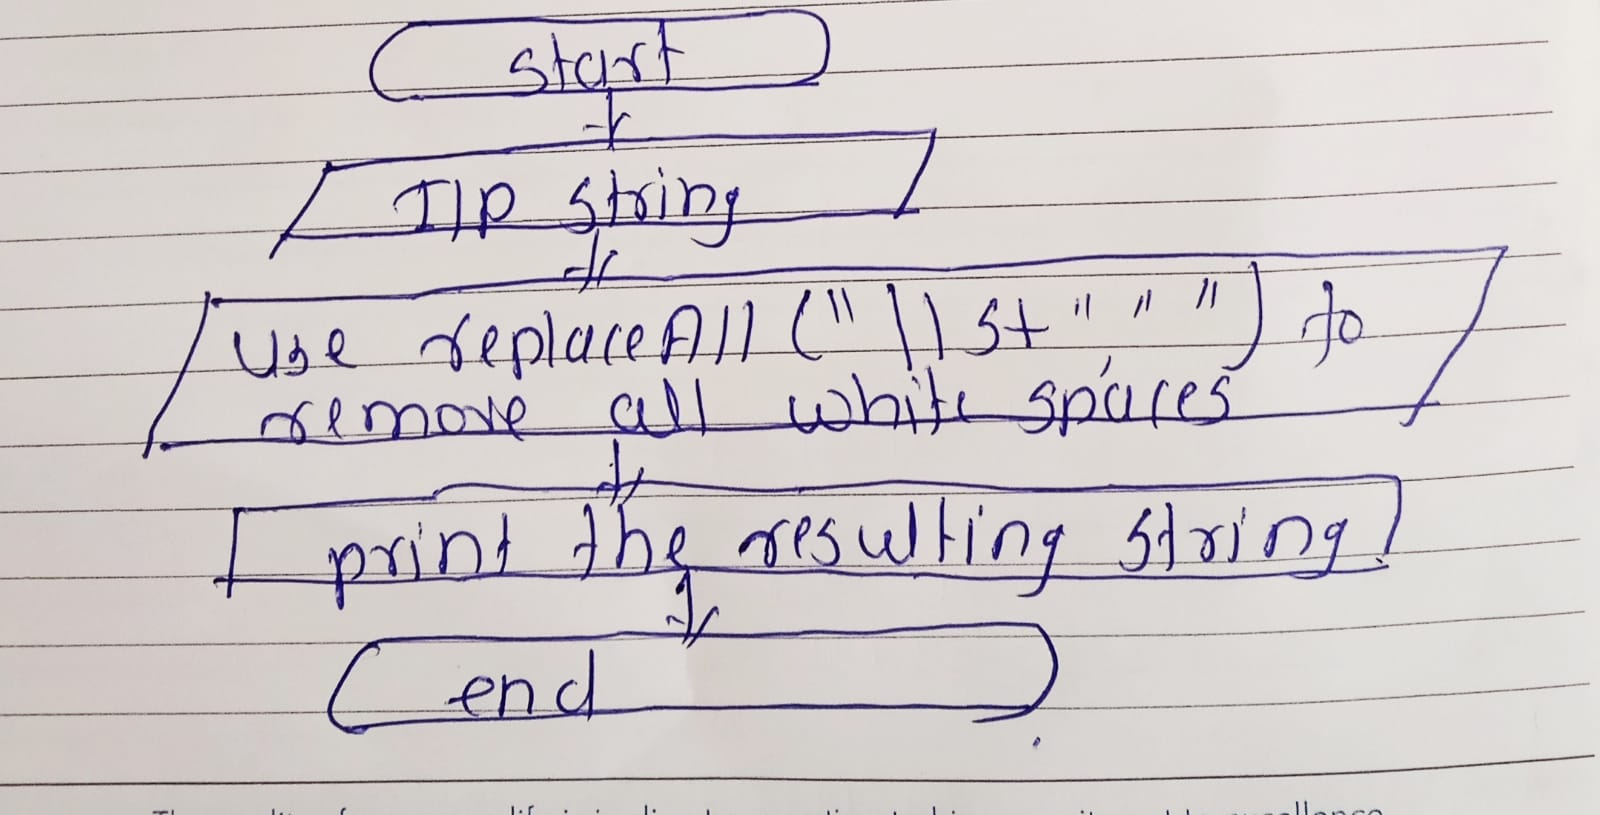 start
I/P string
Use replaceAll ("\\s+" " ") to
remove all white spaces
print the resulting string
end